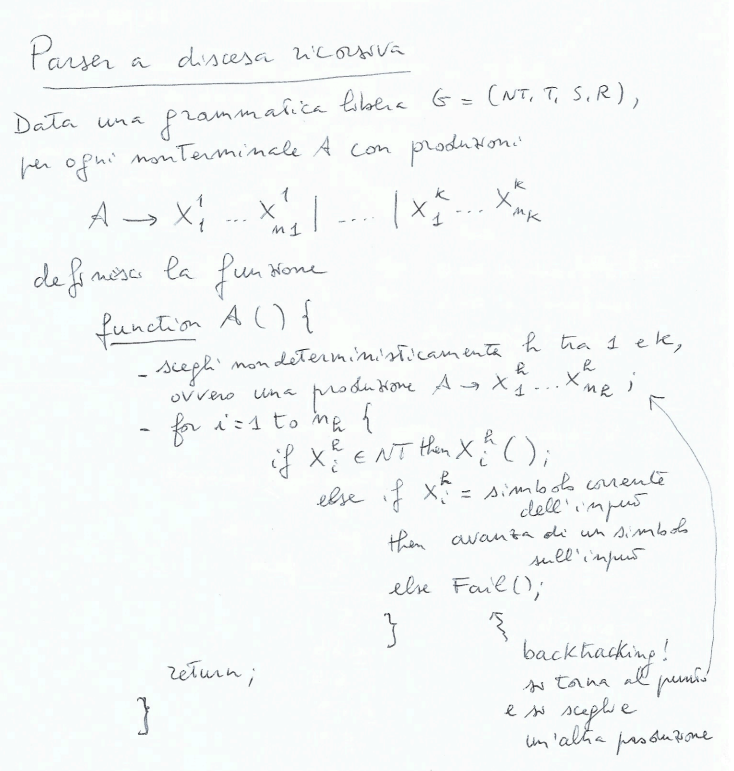 Parser a discesa ricorsiva
Data una grammatica libera G = (NT, T, S, R),
per ogni nonterminale A con produzioni
A → X₁¹ ... X¹ₙ₁ | .... | X₁ᵏ ... Xᵏₙₖ
definisco la funzione
function A() {
- scegli nondeterministicamente h tra 1 e k,
ovvero una produzione A → X₁ʰ ... Xʰₙₕ ;
- for i=1 to nₕ {
if Xᵢʰ ∈ NT then Xᵢʰ();
else if Xᵢʰ = simbolo corrente
dell'input
then avanza di un simbolo
sull'input
else Fail();
}
backtracking!
si torna al punto
e si sceglie
un'altra produzione
return;
}